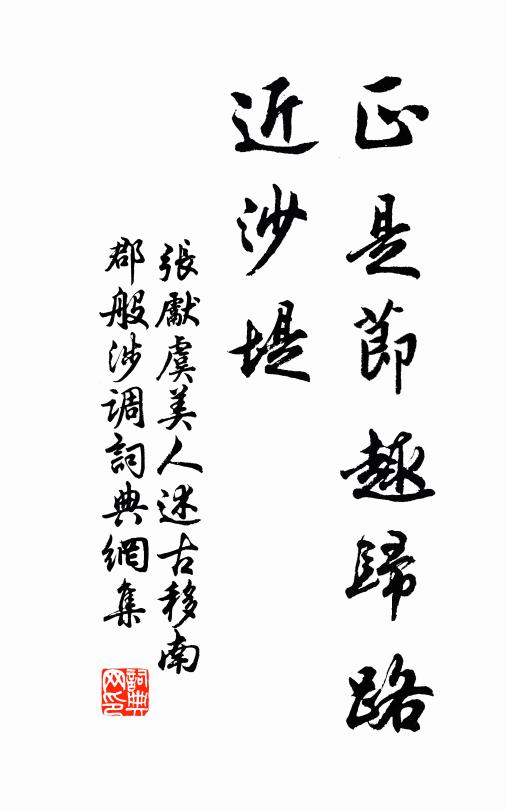 正是節趣歸路
近沙堤
張獻虞美人述古移南
郡般涉调詞典網集
詞典
网印